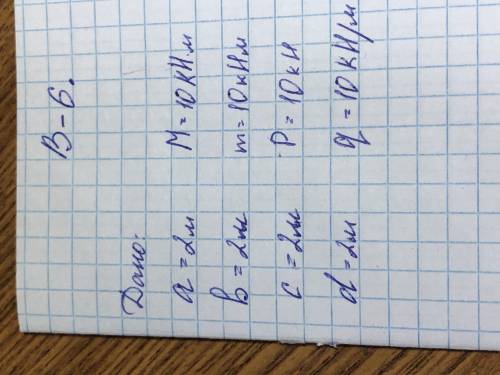 В-6.
Дано:
a = 2м M = 10кН.м
b = 2м m = 10кНм
c = 2м P = 10кН
d = 2м q = 10кН/м